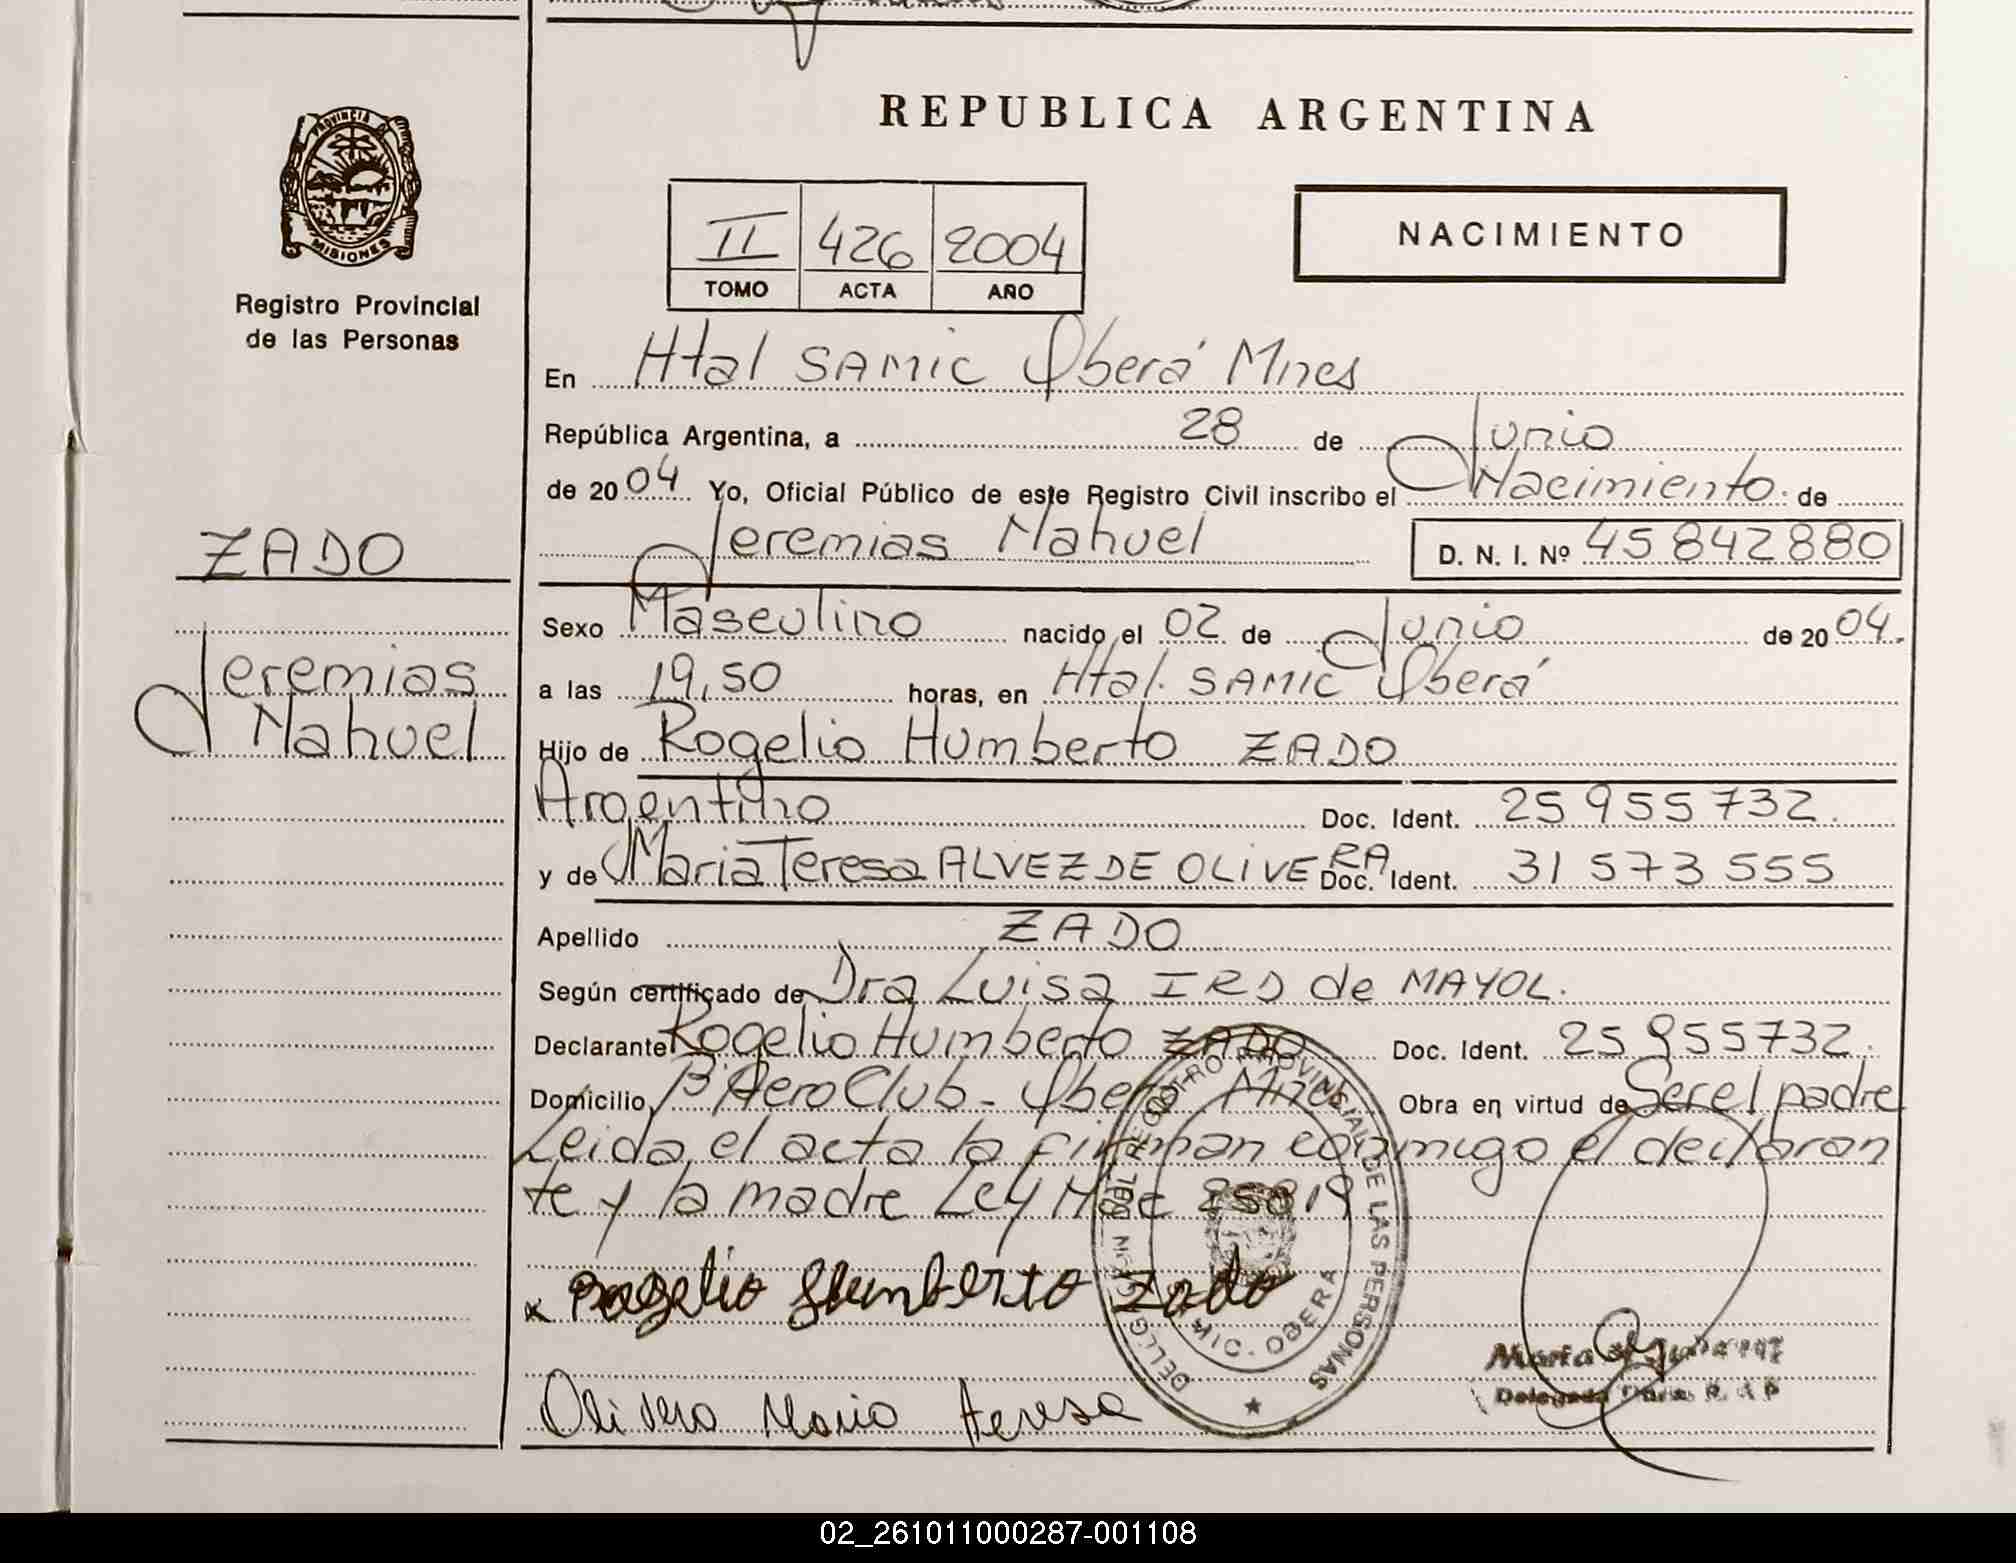 REPUBLICA ARGENTINA
PROVINCIA DE
MISIONES
Registro Provincial
de las Personas
II 426 2004
TOMO ACTA AÑO
NACIMIENTO
En Htal SAMIC Oberá Mnes
República Argentina, a 28 de Junio
de 2004 Yo, Oficial Público de este Registro Civil inscribo el Nacimiento de
Jeremias Nahuel D. N. I. Nº 45 842 880
ZADO
Jeremias
Nahuel
Sexo Masculino nacido el 02 de Junio de 2004
a las 19,50 horas, en Htal. SAMIC Oberá
Hijo de Rogelio Humberto ZADO
Argentino Doc. Ident. 25 955 732.
y de Maria Teresa ALVEZ DE OLIVERA Doc. Ident. 31 573 555
Apellido ZADO
Según certificado de Dra Luisa IRD de MAYOL.
Declarante Rogelio Humberto ZADO Doc. Ident. 25 955 732.
Domicilio Bº Aero Club - Oberá Mnes Obra en virtud de Ser el padre
Leida el acta la firman conmigo el declaran
te y la madre Ley Nac 25819
x Rogelio Humberto Zado
Olivera Maria Teresa
REGISTRO PROVINCIAL DE LAS PERSONAS
OBERA
Maria
Delegada
02_261011000287-001108